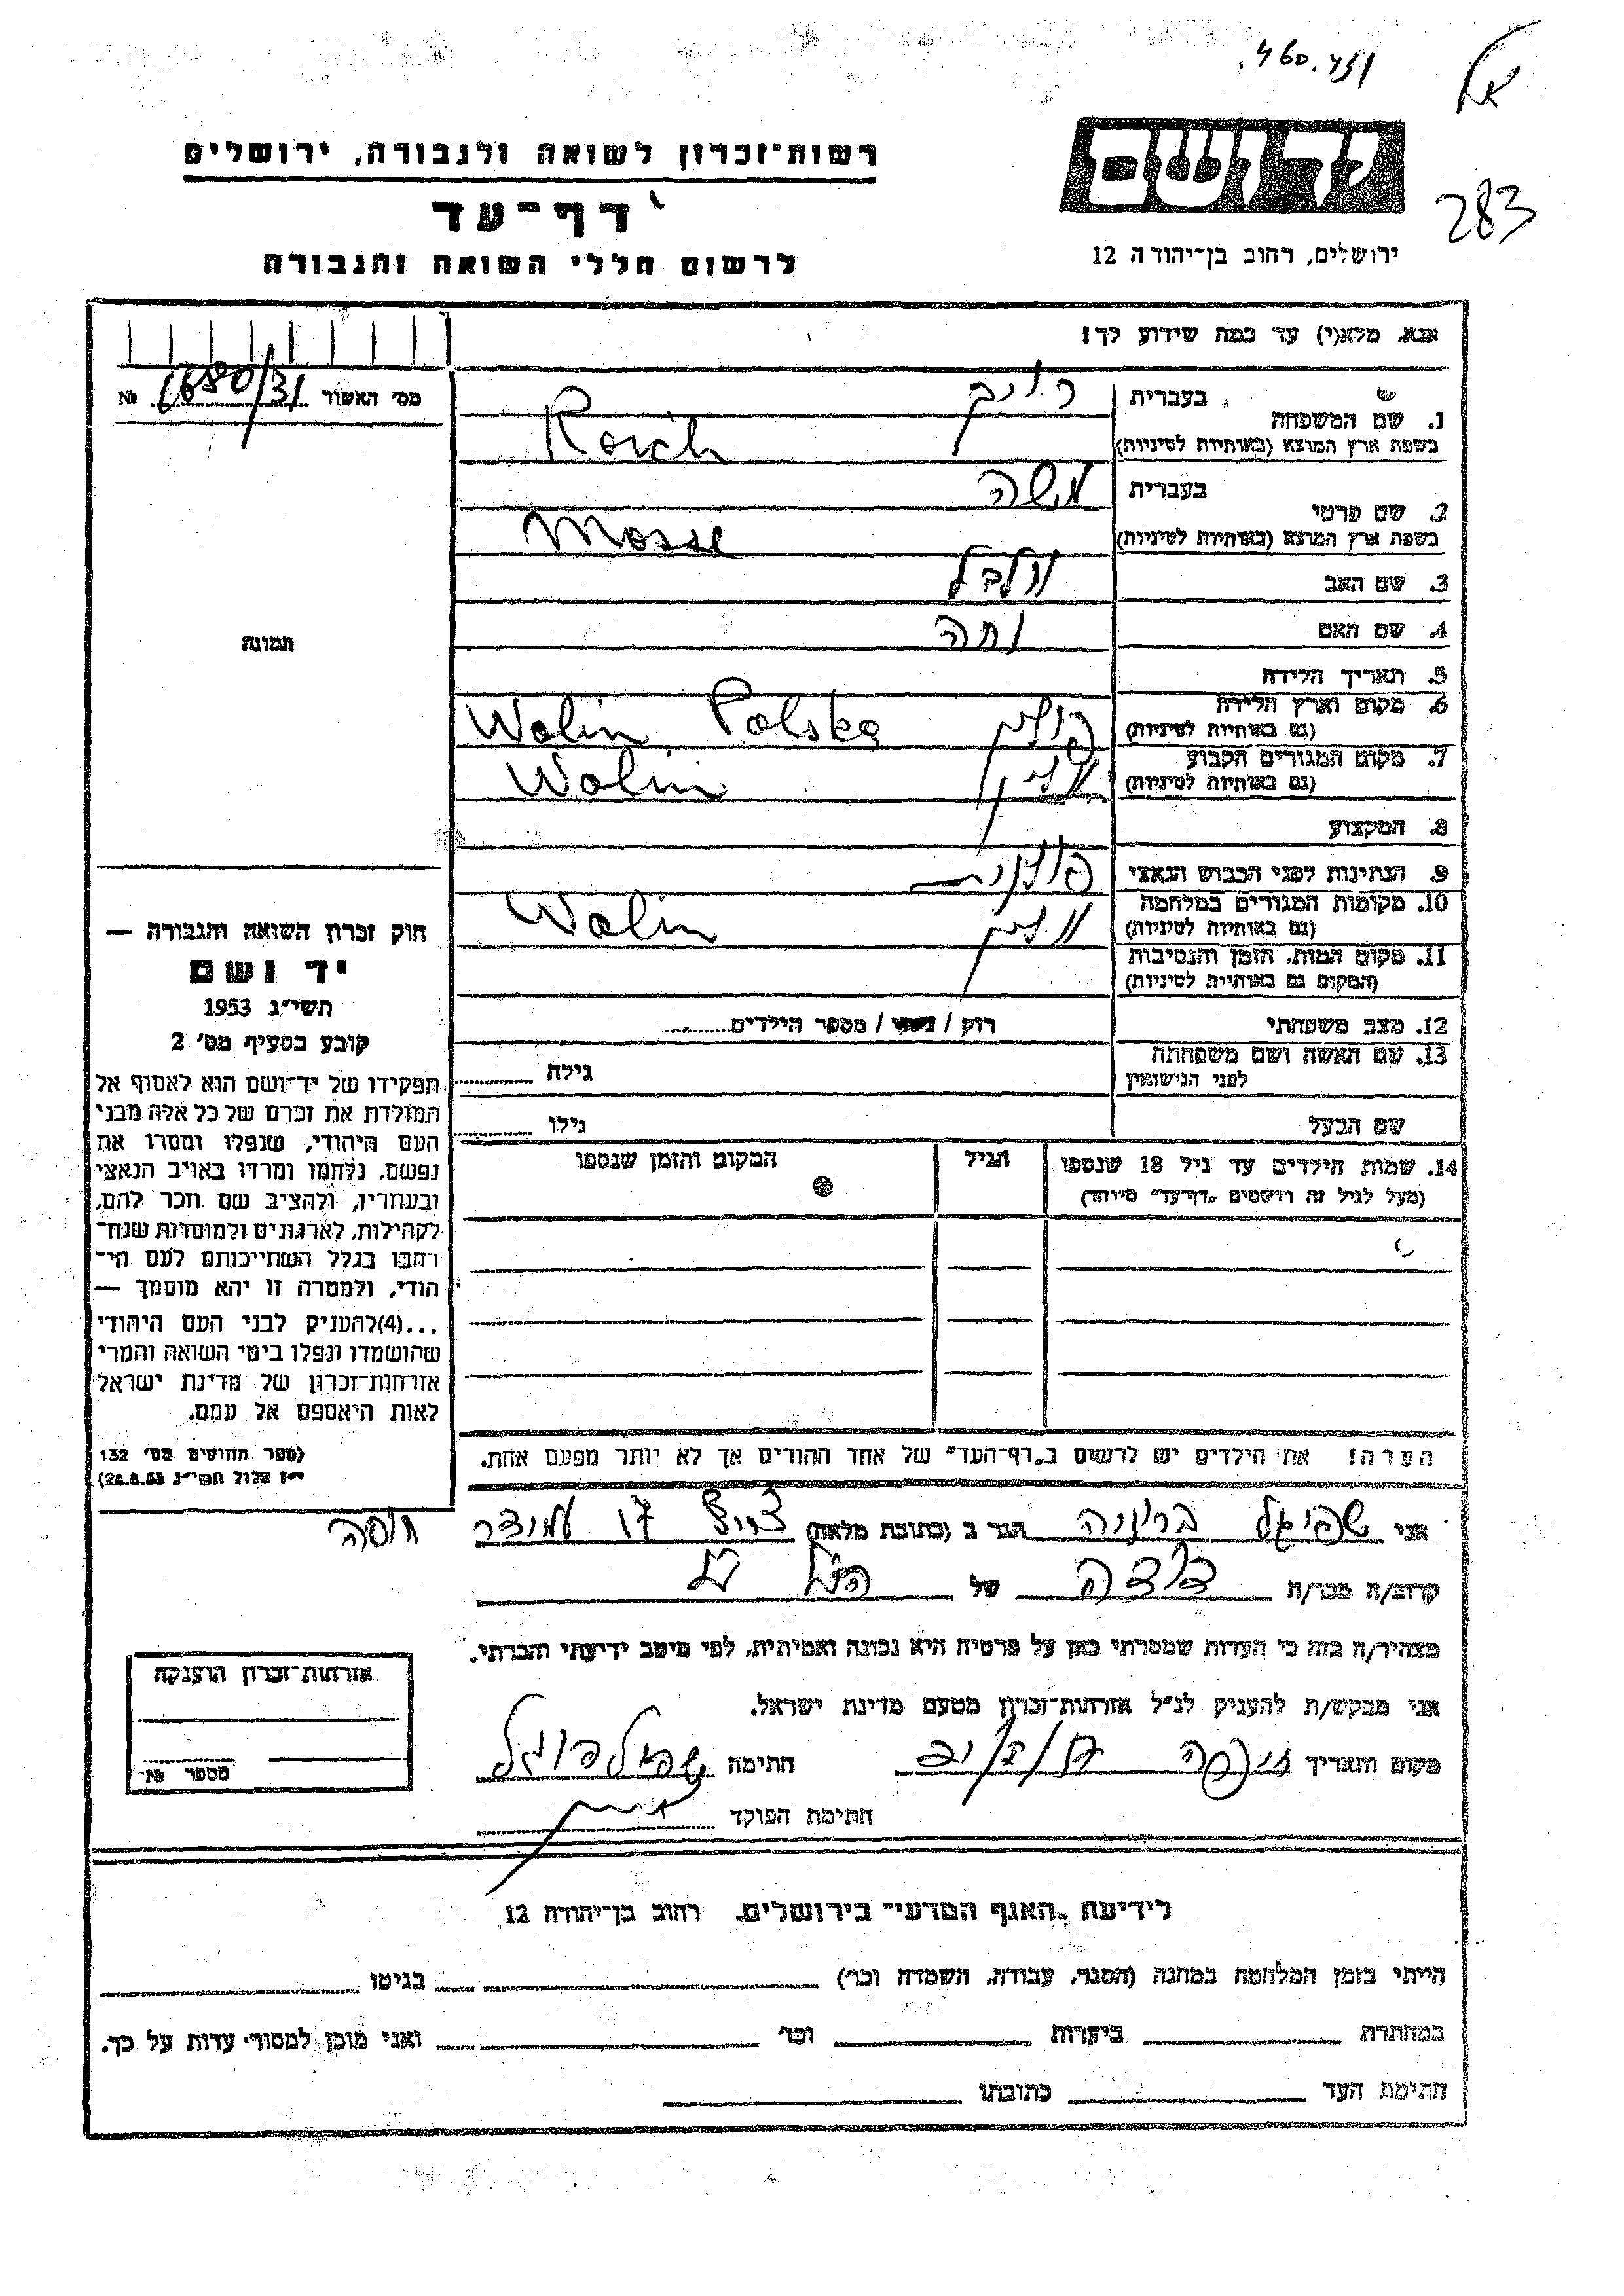 460.431
283
יד ושם
ירושלים, רחוב בן־יהודה 12
רשות־זכרון לשואה ולגבורה, ירושלים
דף־עד
לרשום חללי השואה והגבורה
אנא, מלא(י) עד כמה שידוע לך!
מס׳ האשור 1680/31 №
1. שם המשפחה
בעברית
בשפת ארץ המוצא (באותיות לטיניות) Roich
2. שם פרטי
בעברית משה
בשפת ארץ המוצא (באותיות לטיניות) Mosse
3. שם האב וולבל
4. שם האם
5. תאריך הלידה
6. מקום וארץ הלידה
(גם באותיות לטיניות) פולין Wolin Polska
7. מקום המגורים הקבוע
(גם באותיות לטיניות) וולין Wolin
8. המקצוע
9. הנתינות לפני הכבוש הנאצי פולנית
10. מקומות המגורים במלחמה
(גם באותיות לטיניות) וולין Wolin
11. מקום המות, הזמן והנסיבות
(המקום גם באותיות לטיניות)
12. מצב משפחתי רוק / נשוי / מספר הילדים
13. שם האשה ושם משפחתה
לפני הנישואין גילה
שם הבעל גילו
14. שמות הילדים עד גיל 18 שנספו
(מעל לגיל זה רושמים „דף־עד״ מיוחד)
הגיל
המקום והזמן שנספו
הערה! את הילדים יש לרשום ב„דף־העד״ של אחד ההורים אך לא יותר מפעם אחת.
תמונה
חוק זכרון השואה והגבורה —
יד ושם
תשי״ג 1953
קובע בסעיף מס׳ 2
תפקידו של יד־ושם הוא לאסוף אל
המולדת את זכרם של כל אלה מבני
העם היהודי, שנפלו ומסרו את
נפשם, נלחמו ומרדו באויב הנאצי
ובעוזריו, ולהציב שם וזכר להם,
לקהילות, לארגונים ולמוסדות שנח־
רבו בגלל השתייכותם לעם הי־
הודי, ולמטרה זו יהא מוסמך —
...(4)להעניק לבני העם היהודי
שהושמדו ונפלו בימי השואה והמרי
אזרחות־זכרון של מדינת ישראל
לאות היאספם אל עמם.
(ספר החוקים מס׳ 132
י״ז אלול תשי״ג 28.8.53)
אני שפיגל ברוניה הגר ב (כתובת מלאה) 17 חיפה
קרוב/ה מכר/ה דודה של
מצהיר/ה בזה כי העדות שמסרתי כאן על פרטיה היא נכונה ואמיתית, לפי מיטב ידיעתי והכרתי.
אני מבקש/ת להעניק לנ״ל אזרחות־זכרון מטעם מדינת ישראל.
מקום ותאריך חיפה חתימה
חתימת הפוקד
אזרחות־זכרון הוענקה
מספר №
לידיעת „האגף המדעי״ בירושלים, רחוב בן־יהודה 12
הייתי בזמן המלחמה במחנה (הסגר, עבודה, השמדה וכו׳) בגיטו
במחתרת ביערות וכו׳ ואני מוכן למסור עדות על כך.
חתימת העד כתובתו